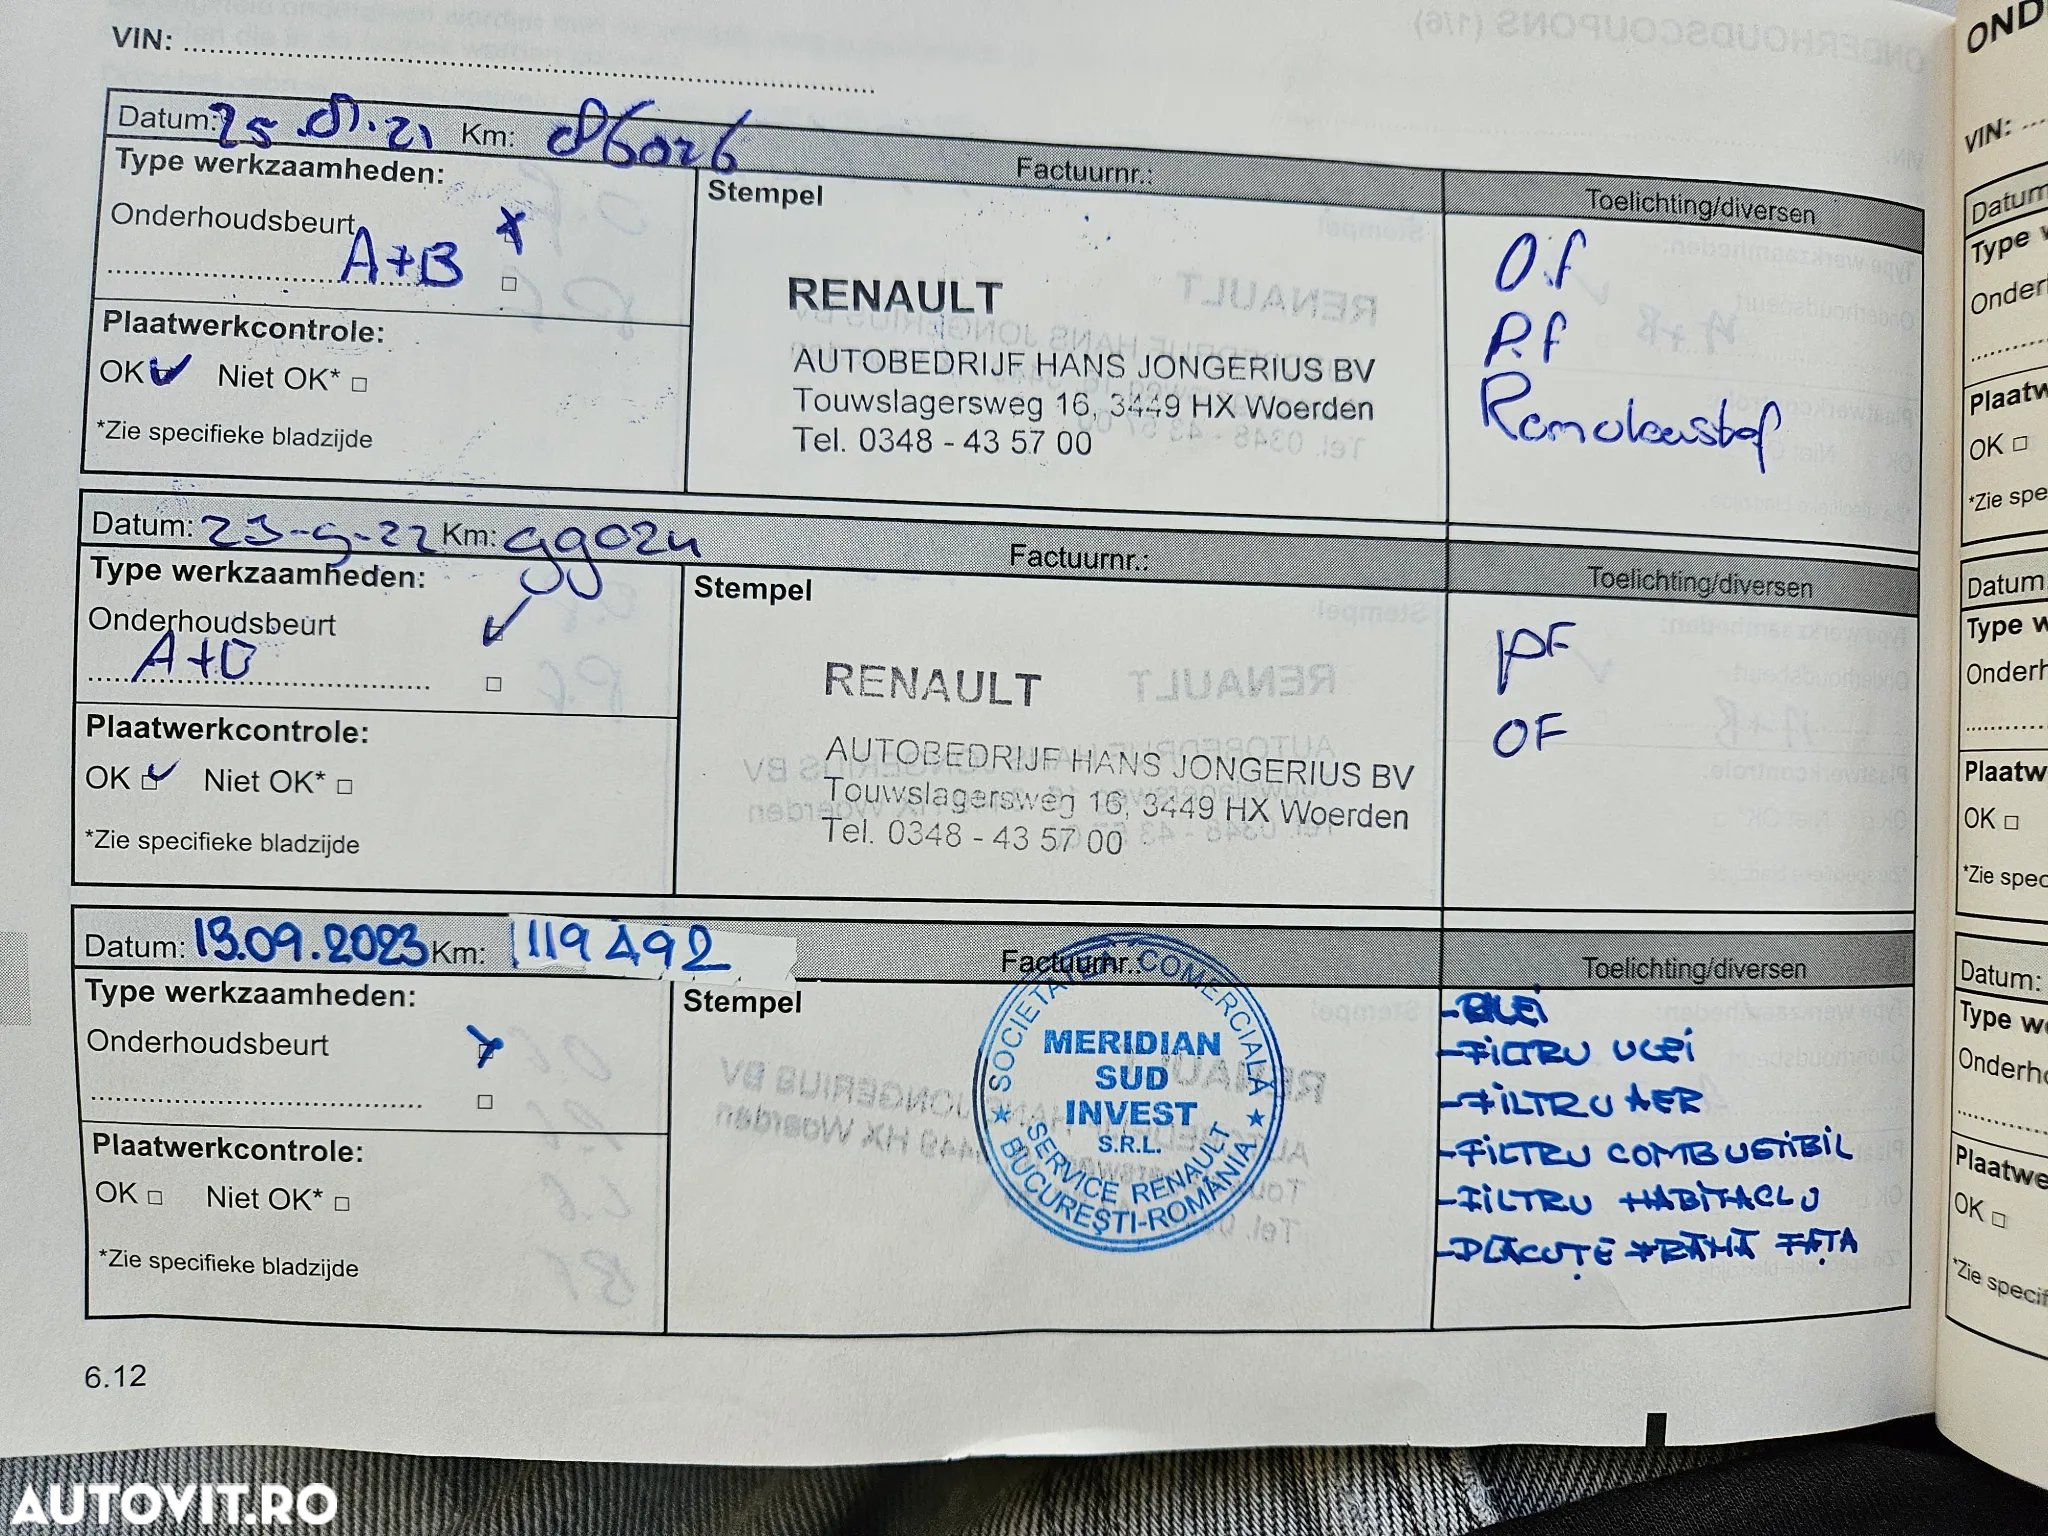 VIN:
Datum: 25.01.21 Km: 86026 Factuurnr.: Toelichting/diversen
Type werkzaamheden:
Onderhoudsbeurt
A+B
Plaatwerkcontrole:
OK Niet OK*
*Zie specifieke bladzijde
Stempel
RENAULT
AUTOBEDRIJF HANS JONGERIUS BV
Touwslagersweg 16, 3449 HX Woerden
Tel. 0348 - 43 57 00
O.f
P.f
Datum: 23-9-22 Km: 99024 Factuurnr.: Toelichting/diversen
Type werkzaamheden:
Onderhoudsbeurt
A+B
Plaatwerkcontrole:
OK Niet OK*
*Zie specifieke bladzijde
Stempel
RENAULT
AUTOBEDRIJF HANS JONGERIUS BV
Touwslagersweg 16, 3449 HX Woerden
Tel. 0348 - 43 57 00
PF
OF
Datum: 13.09.2023 Km: 119492 Factuurnr.: Toelichting/diversen
Type werkzaamheden:
Onderhoudsbeurt
Plaatwerkcontrole:
OK Niet OK*
*Zie specifieke bladzijde
Stempel
SOCIETATEA COMERCIALĂ
MERIDIAN
SUD
INVEST
S.R.L.
SERVICE RENAULT
BUCUREŞTI-ROMÂNIA
-ULEI
-FILTRU ULEI
-FILTRU AER
-FILTRU COMBUSTIBIL
-FILTRU HABITACLU
-PLĂCUȚE FRÂNĂ FAȚĂ
6.12
OND
VIN:
Datum
Type
Onder
Plaatw
OK
*Zie spe
Datum:
Type w
Onderh
Plaatw
OK
*Zie spec
Datum:
Type we
Onderho
Plaatwe
OK
*Zie specif
AUTOVIT.RO